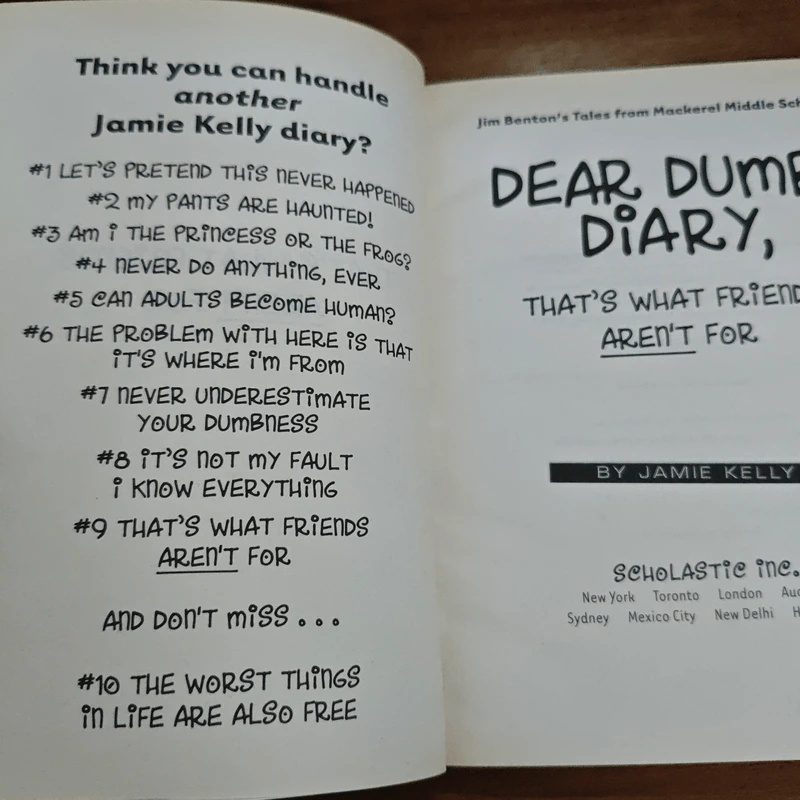 Think you can handle
another
Jamie Kelly diary?
#1 LET'S PRETEND THIS NEVER HAPPENED
#2 MY PANTS ARE HAUNTED!
#3 AM I THE PRINCESS OR THE FROG?
#4 NEVER DO ANYTHING, EVER
#5 CAN ADULTS BECOME HUMAN?
#6 THE PROBLEM WITH HERE IS THAT
IT'S WHERE I'M FROM
#7 NEVER UNDERESTIMATE
YOUR DUMBNESS
#8 IT'S NOT MY FAULT
I KNOW EVERYTHING
#9 THAT'S WHAT FRIENDS
AREN'T FOR
AND DON'T MISS . . .
#10 THE WORST THINGS
IN LIFE ARE ALSO FREE
Jim Benton's Tales from Mackerel Middle
DEAR
DIARY,
THAT'S WHAT
AREN'T FOR
BY JAMIE KELLY
SCHOLASTIC INC.
New York Toronto London
Sydney Mexico City New Delhi